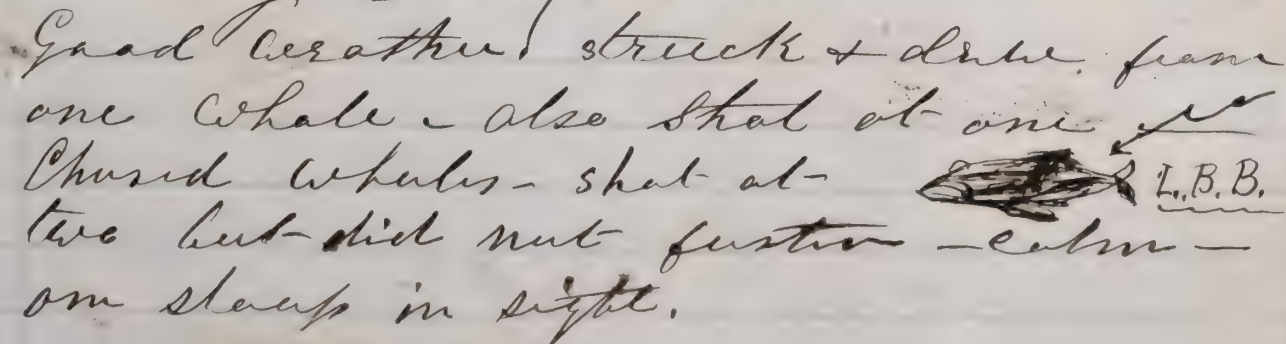 Good weather, struck & drew from
one whale - also shot at one
Chased whales - shot at
L.B.B.
two but did not fasten - calm -
one sloop in sight.